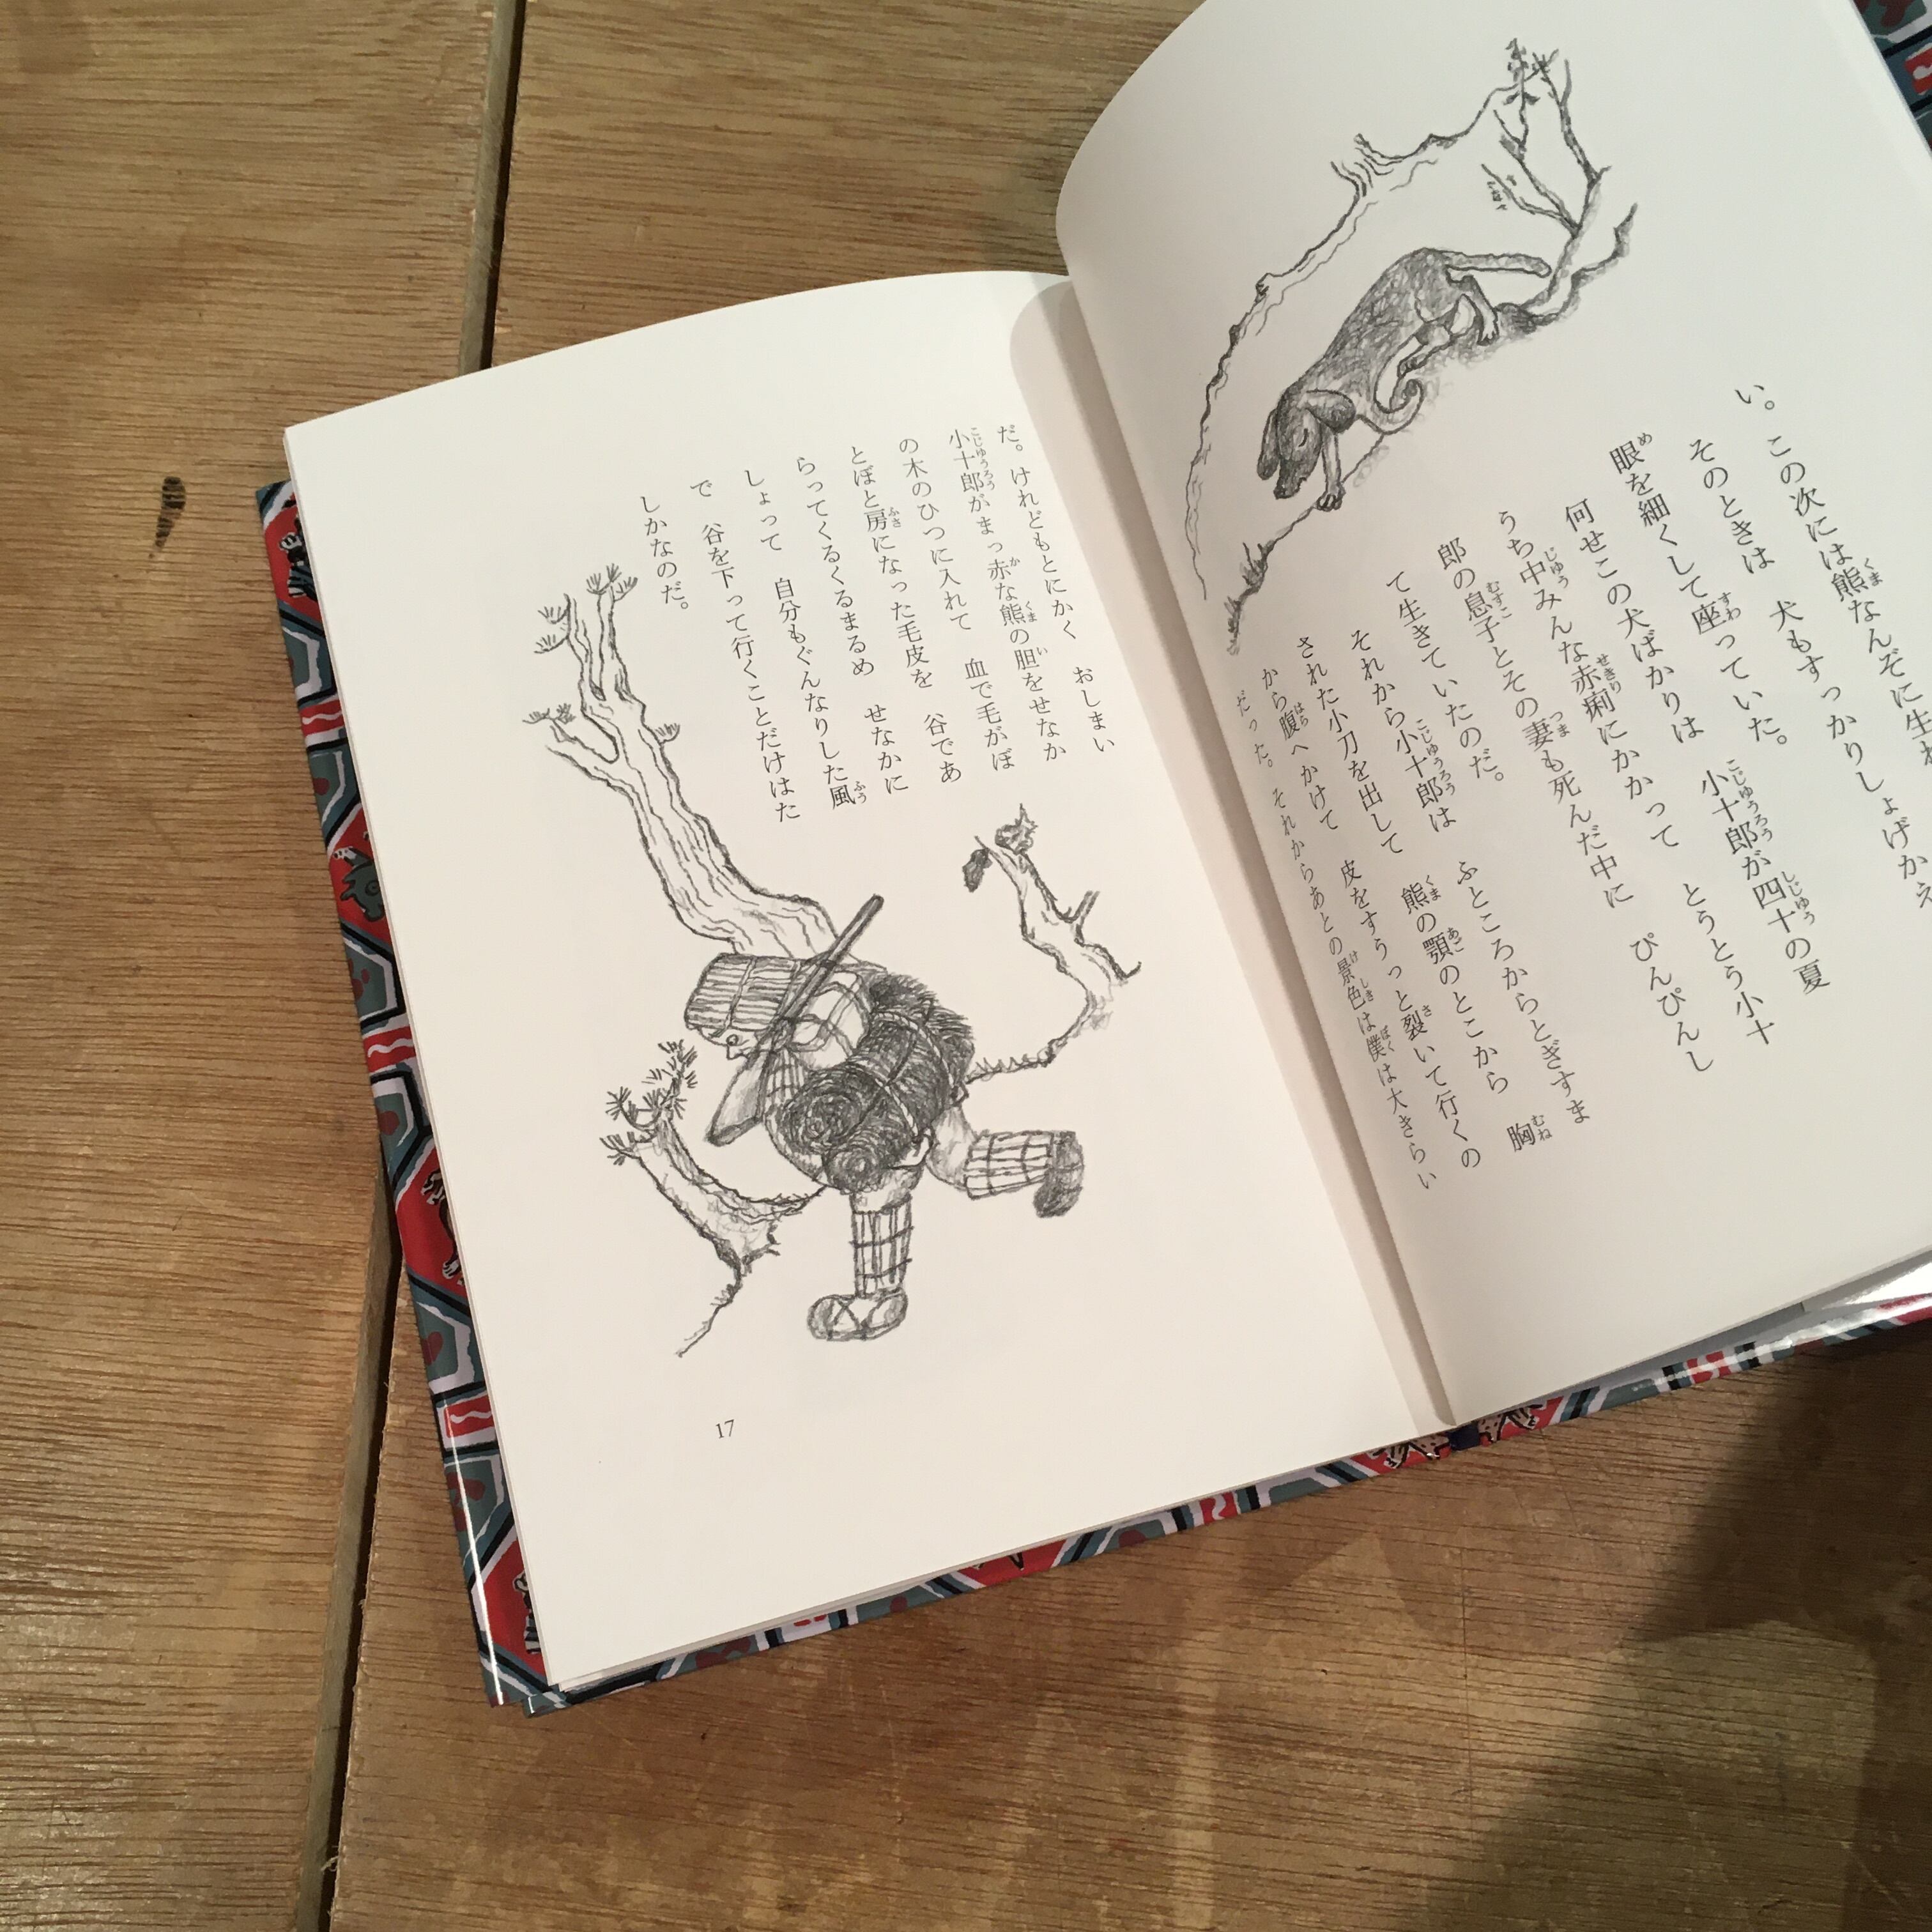 い。この次には熊なんぞに生れ
そのときは　犬もすっかりしょげかえ
眼を細くして座っていた。
何せこの犬ばかりは　小十郎が四十の夏
うち中みんな赤痢にかかって　とうとう小十
郎の息子とその妻も死んだ中に　ぴんぴんし
て生きていたのだ。
それから小十郎は　ふところからとぎすま
された小刀を出して　熊の顎のとこから　胸
から腹へかけて　皮をすうっと裂いて行くの
だった。それからあとの景色は僕は大きらい
だ。けれどもとにかく　おしまい
小十郎がまっ赤な熊の胆をせなか
の木のひつに入れて　血で毛がぼ
とぼと房になった毛皮を　谷であ
らってくるくるまるめ　せなかに
しょって　自分もぐんなりした風
で　谷を下って行くことだけはた
しかなのだ。
17